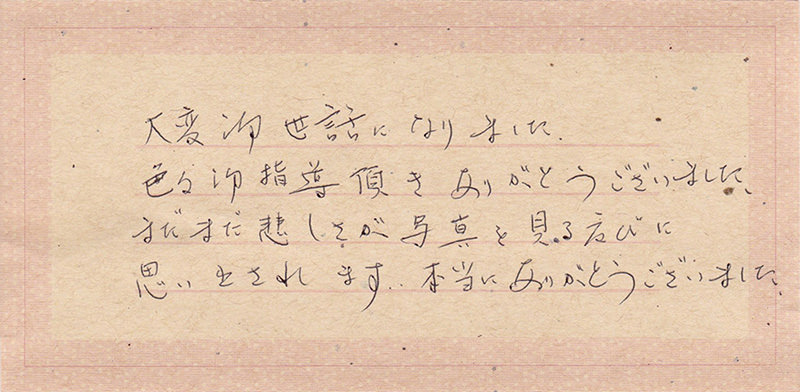 大変御世話になりました。
色々御指導頂きありがとうございました。
まだまだ悲しさが写真を見る度びに
思い出されます。本当にありがとうございました。